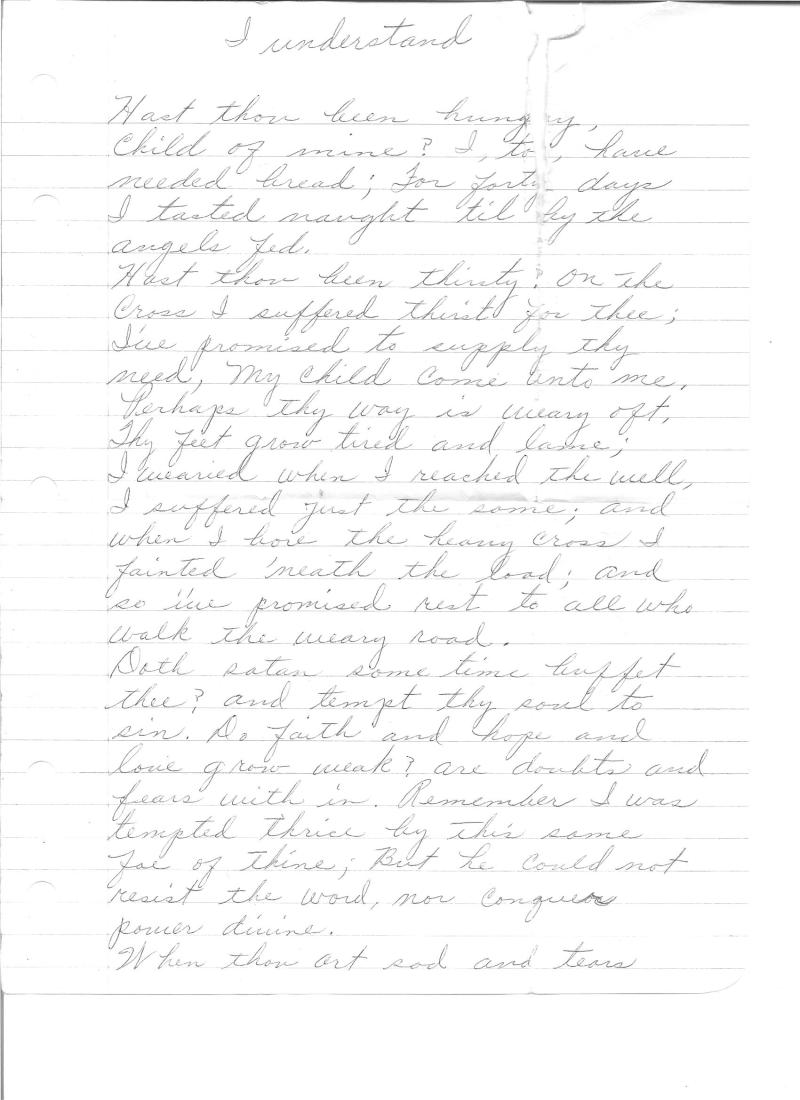 I understand
Hast thou been hungry,
Child of mine? I, to, have
needed bread; For forty days
I tasted naught 'til by the
angels fed.
Hast thou been thirsty? On the
Cross I suffered thirst for thee;
I've promised to supply thy
need, My child come unto me.
Perhaps thy way is weary oft,
Thy feet grow tired and lame;
I wearied when I reached the well,
I suffered just the same; and
when I bore the heavy cross I
fainted 'neath the load; and
so i've promised rest to all who
walk the weary road.
Doth satan some time buffet
thee? and tempt thy soul to
sin. Do faith and hope and
love grow weak? are doubts and
fears with in. Remember I was
tempted thrice by this same
foe of thine; But he could not
resist the word, nor conquer
power divine.
When thou art sad and tears